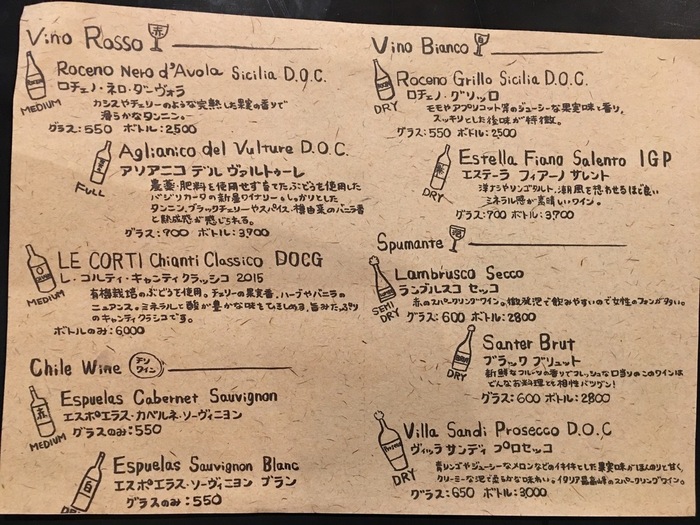 Vino Rosso 赤
MEDIUM
Roceno Nero d'Avola Sicilia D.O.C.
ロチェノ・ネロ・ダーヴォラ
カシスやチェリーのような完熟した果実の香りで
滑らかなタンニン。
グラス:550 ボトル:2500
FULL
Aglianico del Vulture D.O.C.
アリアニコ デル ヴァルトゥーレ
農薬・肥料を使用せず育てたぶどうを使用した
バジリカータの新着ワイナリー。しっかりとした
タンニン、ブラックチェリーやスパイス、樽由来のバニラ香
と熟成感が感じられる。
グラス:900 ボトル:3,900
MEDIUM
LE CORTI Chianti Classico DOCG
レ・コルティ・キャンティクラッシコ 2015
有機栽培のぶどうを使用。チェリーの果実香、ハーブやバニラの
ニュアンス。ミネラルと酸が豊かな味を
のキャンティクラシコです。
ボトルのみ:6,000
Chile Wine チリワイン
赤
MEDIUM
Espuelas Cabernet Sauvignon
エスポエラス・カベルネ・ソーヴィニヨン
グラスのみ:550
白
DRY
Espuelas Sauvignon Blanc
エスポエラス・ソーヴィニヨン ブラン
グラスのみ:550
Vino Bianco 白
DRY
Roceno Grillo Sicilia D.O.C.
ロチェノ・グリッロ
モモやアプリコット等のジューシーな果実味と香り。
スッキリとした後味が特徴。
グラス:550 ボトル:2500
DRY
Estella Fiano Salento IGP
エステーラ フィアーノ サレント
洋ナシやリンゴタルト、潮風を思わせるほど良い
ミネラル感が素晴しいワイン。
グラス:900 ボトル:3,900
Spumante 泡
SEMI DRY
Lambrusco Secco
ランブルスコ セッコ
赤のスパークリングワイン。微発泡で飲みやすいので女性のファンが多い。
グラス:600 ボトル:2800
DRY
Santer Brut
ブラック ブリュット
新鮮なフルーツの香りでフレッシュな口当りのこのワインは
どんなお料理とも相性バツグン!
グラス:600 ボトル:2800
DRY
Villa Sandi Prosecco D.O.C
ヴィッラ サンディ プロセッコ
青リンゴやジューシーなメロンなどのイキイキとした果実味がほんのりと甘く、
クリーミーな泡で柔らかな味わい。イタリア最高峰のスパークリングワイン。
グラス:650 ボトル:3000